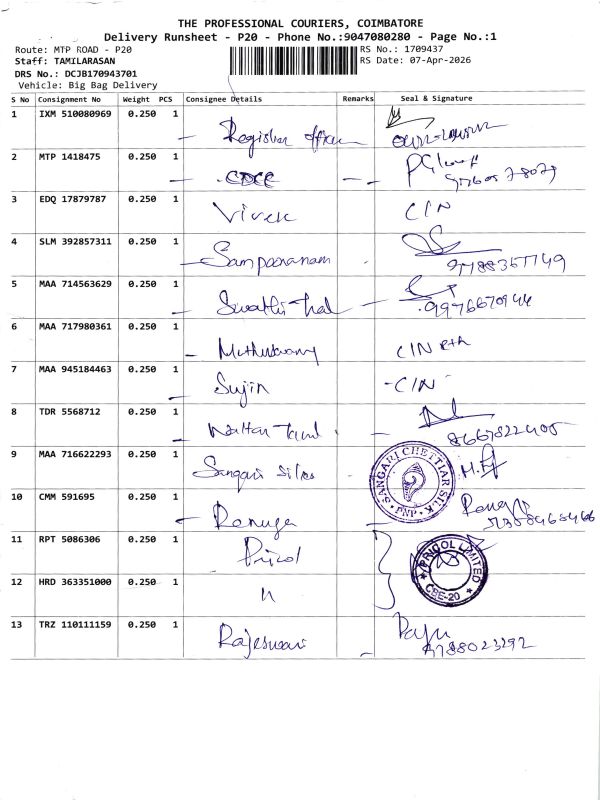 THE PROFESSIONAL COURIERS, COIMBATORE
Delivery Runsheet - P20 - Phone No.:9047080280 - Page No.:1
Route: MTP ROAD - P20
RS No.: 1709437
Staff: TAMILARASAN
RS Date: 07-Apr-2026
DRS No.: DCJB170943701
Vehicle: Big Bag Delivery
S No Consignment No Weight PCS Consignee Details Remarks Seal & Signature
1 IXM 510080969 0.250 1 Register office
2 MTP 1418475 0.250 1
3 EDQ 17879787 0.250 1 Vivek C/N
4 SLM 392857311 0.250 1 Sampooranam 9788357749
5 MAA 714563629 0.250 1 9976670944
6 MAA 717980361 0.250 1 Muthuswamy C/N
7 MAA 945184463 0.250 1 Sujin - C/N
8 TDR 5568712 0.250 1 8667822405
9 MAA 716622293 0.250 1 Sangari Silks SANGARI CHETTIAR SILK
10 CMM 591695 0.250 1 Renuga
11 RPT 5086306 0.250 1 Pricol PRICOL LIMITED CBE-20
12 HRD 363351000 0.250 1 "
13 TRZ 110111159 0.250 1 Rajeswari Raju 9788023292